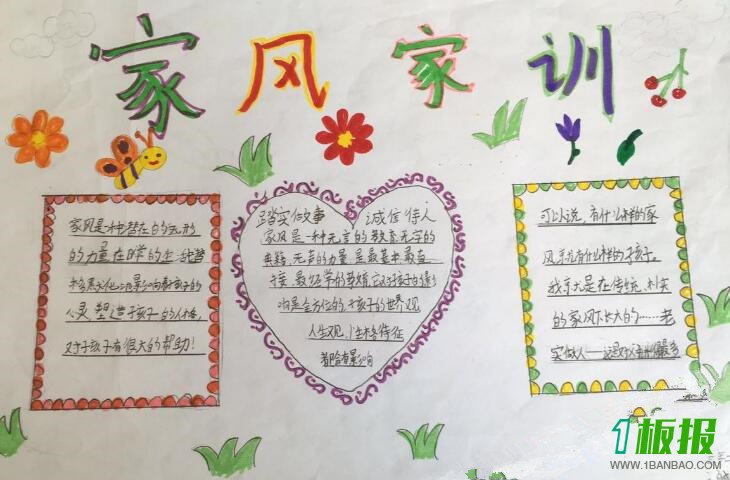 家风家训
家风是一种潜在的无形
的力量在日常的生
孩子的
心灵塑造孩子的人格,
对于孩子有很大的帮助!
踏实做事 诚信待人
家风是一种无言的教育无字的
典籍无声的力量是最基本最直
接、最经常的教育它对孩子的影
响是全方位的,孩子的世界观
人生观、性格特征
都会有影响
可以说,有什么样的家
风就有什么样的孩子。
我就是在传统、朴实
的家风下长大的……老
实做人——这是
1板报
WWW.1BANBAO.COM